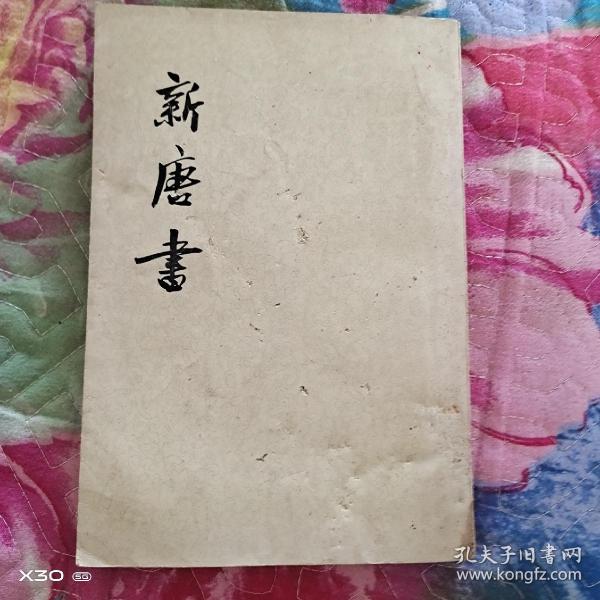 新唐書
孔夫子旧書网
www.kongfz.com
X30 5G